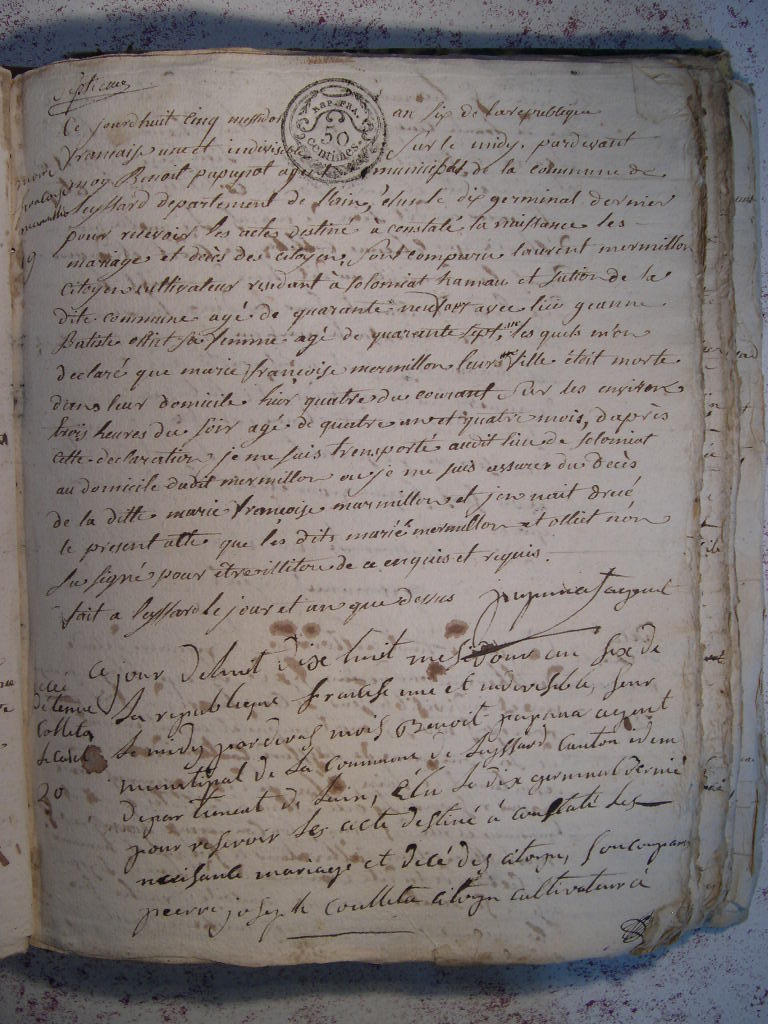 Septieme
Ce jourdhuit cinq messidor an six de la republique
francaise une et indivisible sur le midy pardevant
moy Benoit papunat agent municipal de la commune de
Leyssard departement de Lain, élu le dix germinal dernier
pour recevoir les actes destiné a constaté la naissance les
mariage et décès des citoyen, sont comparu laurent mermillon
citoyen cultivateur residant à solomiat hameau et section de la
dite commune agé de quarante neuf avec lui jeanne
Batiste olliet sa femme agé de quarante sept, les quels m'on
declaré que marie françoise mermillon leurs fille étoit morte
dans leur domicile hier quatre du courant sur les environ
trois heures du soir agé de quatre an et quatre mois, daprès
cette declaration je me suis transporté audit lieu de solomiat
au domicile dudit mermillon ou je me suis assurer du décès
de la ditte marie françoise marmillon et j'en nait dreué
le present atte que les dits marié mermillon et olliet n'on
su signé pour être illitere de ce enquis et requis.
fait a Leyssard le jour et an que dessus papunat agent
REP. FRA.
50
centimes.
mort
19
ce jour dehuit dixe huit mesidour an six de
la republique francise une et indivisible, seur
le midy pardevas mois Benoit papuna agent
municipal de la commune de Leyssard canton idem
departement de Lain, élu le dix germinal dernié
pour reservoir les acte destiné à constaté les
naisante mariage et décé des citoyn, son conparu
pierre joseph coulleta citoyn cultivateur à
décé
detienne
Colleta
20